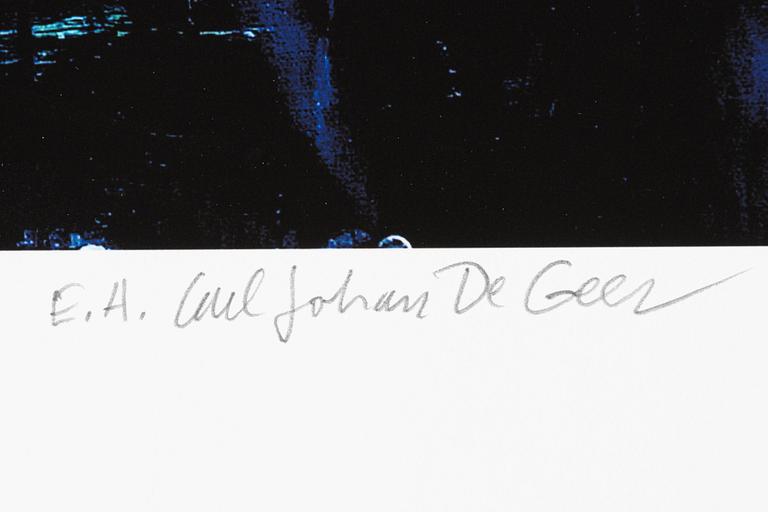 E.A. Carl Johan De Geer